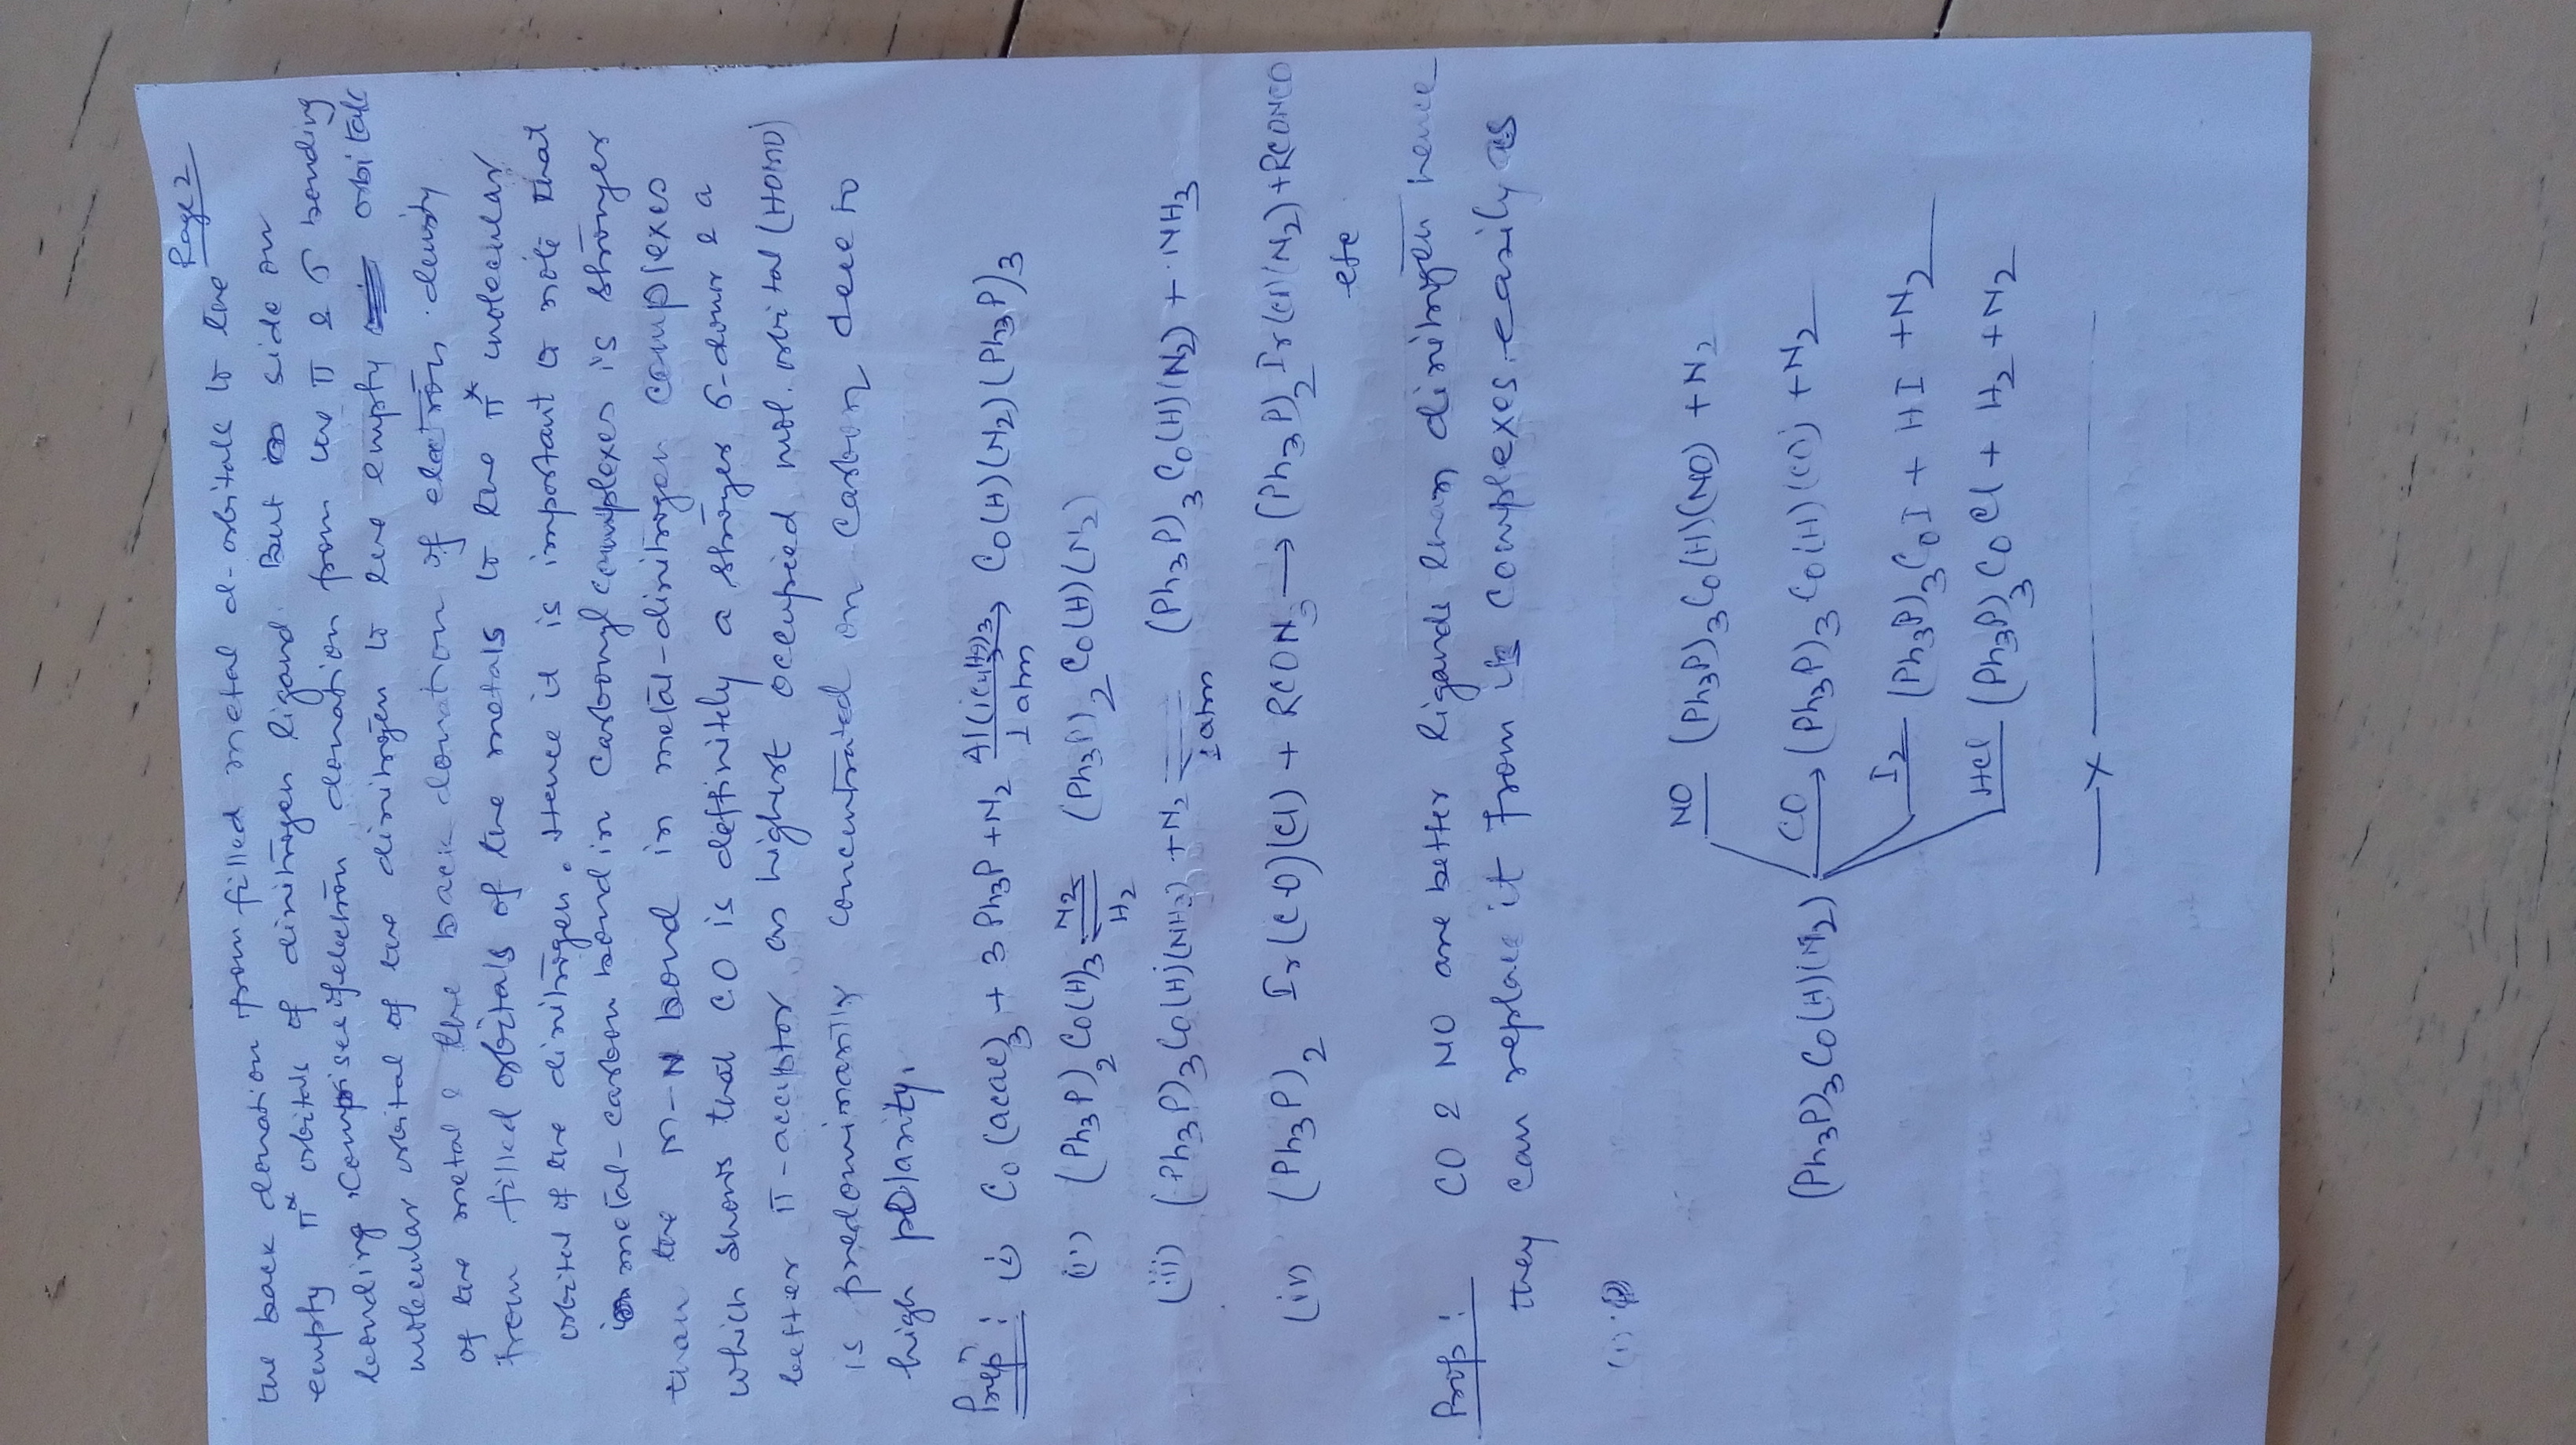 Page 2
the back donation from filled metal d-orbitals to the
empty π* orbitals of dinitrogen ligand. But side on
bonding comprises of electron donation from the π & σ bonding
molecular orbital of the dinitrogen to the empty orbitals
of the metal & the back donation of electron density
from filled orbitals of the metals to the π* molecular
orbital of the dinitrogen. Hence it is important to note that
metal-carbon bond in carbonyl complexes is stronger
than the M-N bond in metal-dinitrogen complexes
which shows that CO is deffinitely a stronger σ-donor & a
better π-acceptor as highest occupied mol. orbital (HOMO)
is predominarily concentrated on carbon due to
high polarity.
Prepn: (i) Co(acac)3 + 3Ph3P + N2 Al(iC4H9)3 → Co(H)(N2)(Ph3P)3
1 atm
(ii) (Ph3P)2Co(H)3 N2 (Ph3P)2Co(H)(N2)
H2
(iii) (Ph3P)3Co(H)(NH3) + N2 = (Ph3P)3Co(H)(N2) + NH3
1 atm
(iv) (Ph3P)2 Ir(CO)(Cl) + RCON3 → (Ph3P)2Ir(Cl)(N2)+RCONCO
etc
Prop: CO & NO are better ligands than dinitrogen hence
they can replace it from its complexes easily as
(i)
NO (Ph3P)3Co(H)(NO) + N2
(Ph3P)3Co(H)(N2) CO → (Ph3P)3Co(H)(CO) + N2
I2 (Ph3P)3CoI + HI + N2
HCl (Ph3P)3CoCl + H2 + N2
—x—